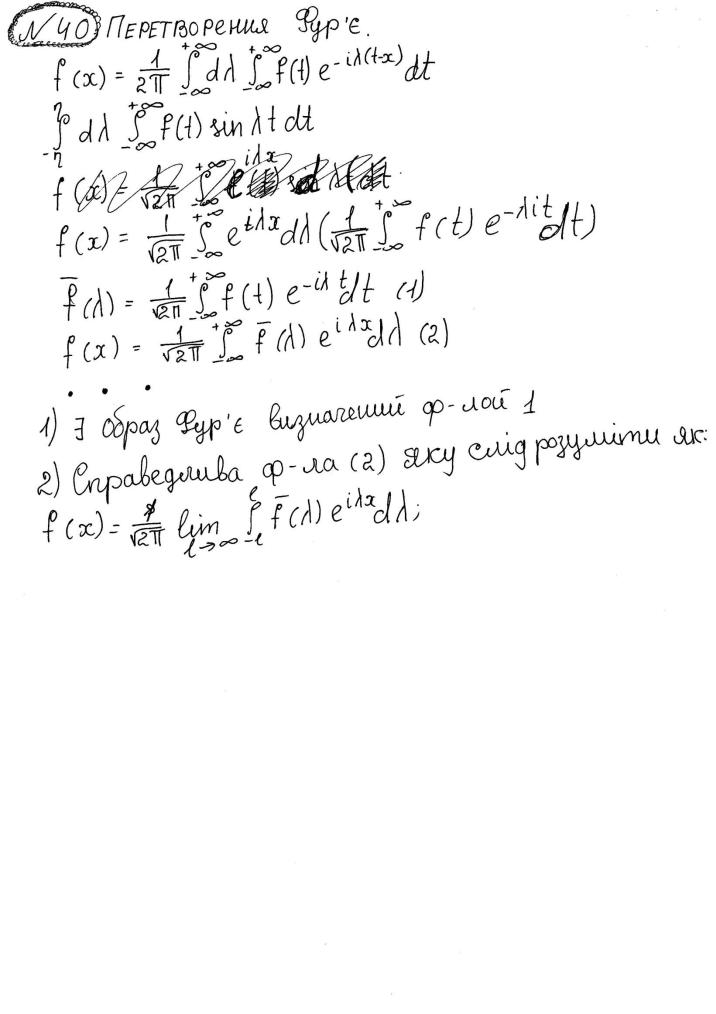 №40 Перетворення Фур'є.
f(x) = 1/2π ∫_{-∞}^{+∞} dλ ∫_{-∞}^{+∞} f(t) e^{-iλ(t-x)} dt
∫_{-η}^{η} dλ ∫_{-∞}^{+∞} f(t) sin λt dt
f(x) = 1/√2π ∫_{-∞}^{+∞} e^{iλx}
f(x) = 1/√2π ∫_{-∞}^{+∞} e^{iλx} dλ (1/√2π ∫_{-∞}^{+∞} f(t) e^{-λit} dt)
f̄(λ) = 1/√2π ∫_{-∞}^{+∞} f(t) e^{-iλt} dt (1)
f(x) = 1/√2π ∫_{-∞}^{+∞} f̄(λ) e^{iλx} dλ (2)
. . .
1) ∃ образ Фур'є визначений ф-лой 1
2) Справедлива ф-ла (2) яку слід розуміти як:
f(x) = 1/√2π lim_{l→∞} ∫_{-l}^{l} f̄(λ) e^{iλx} dλ;